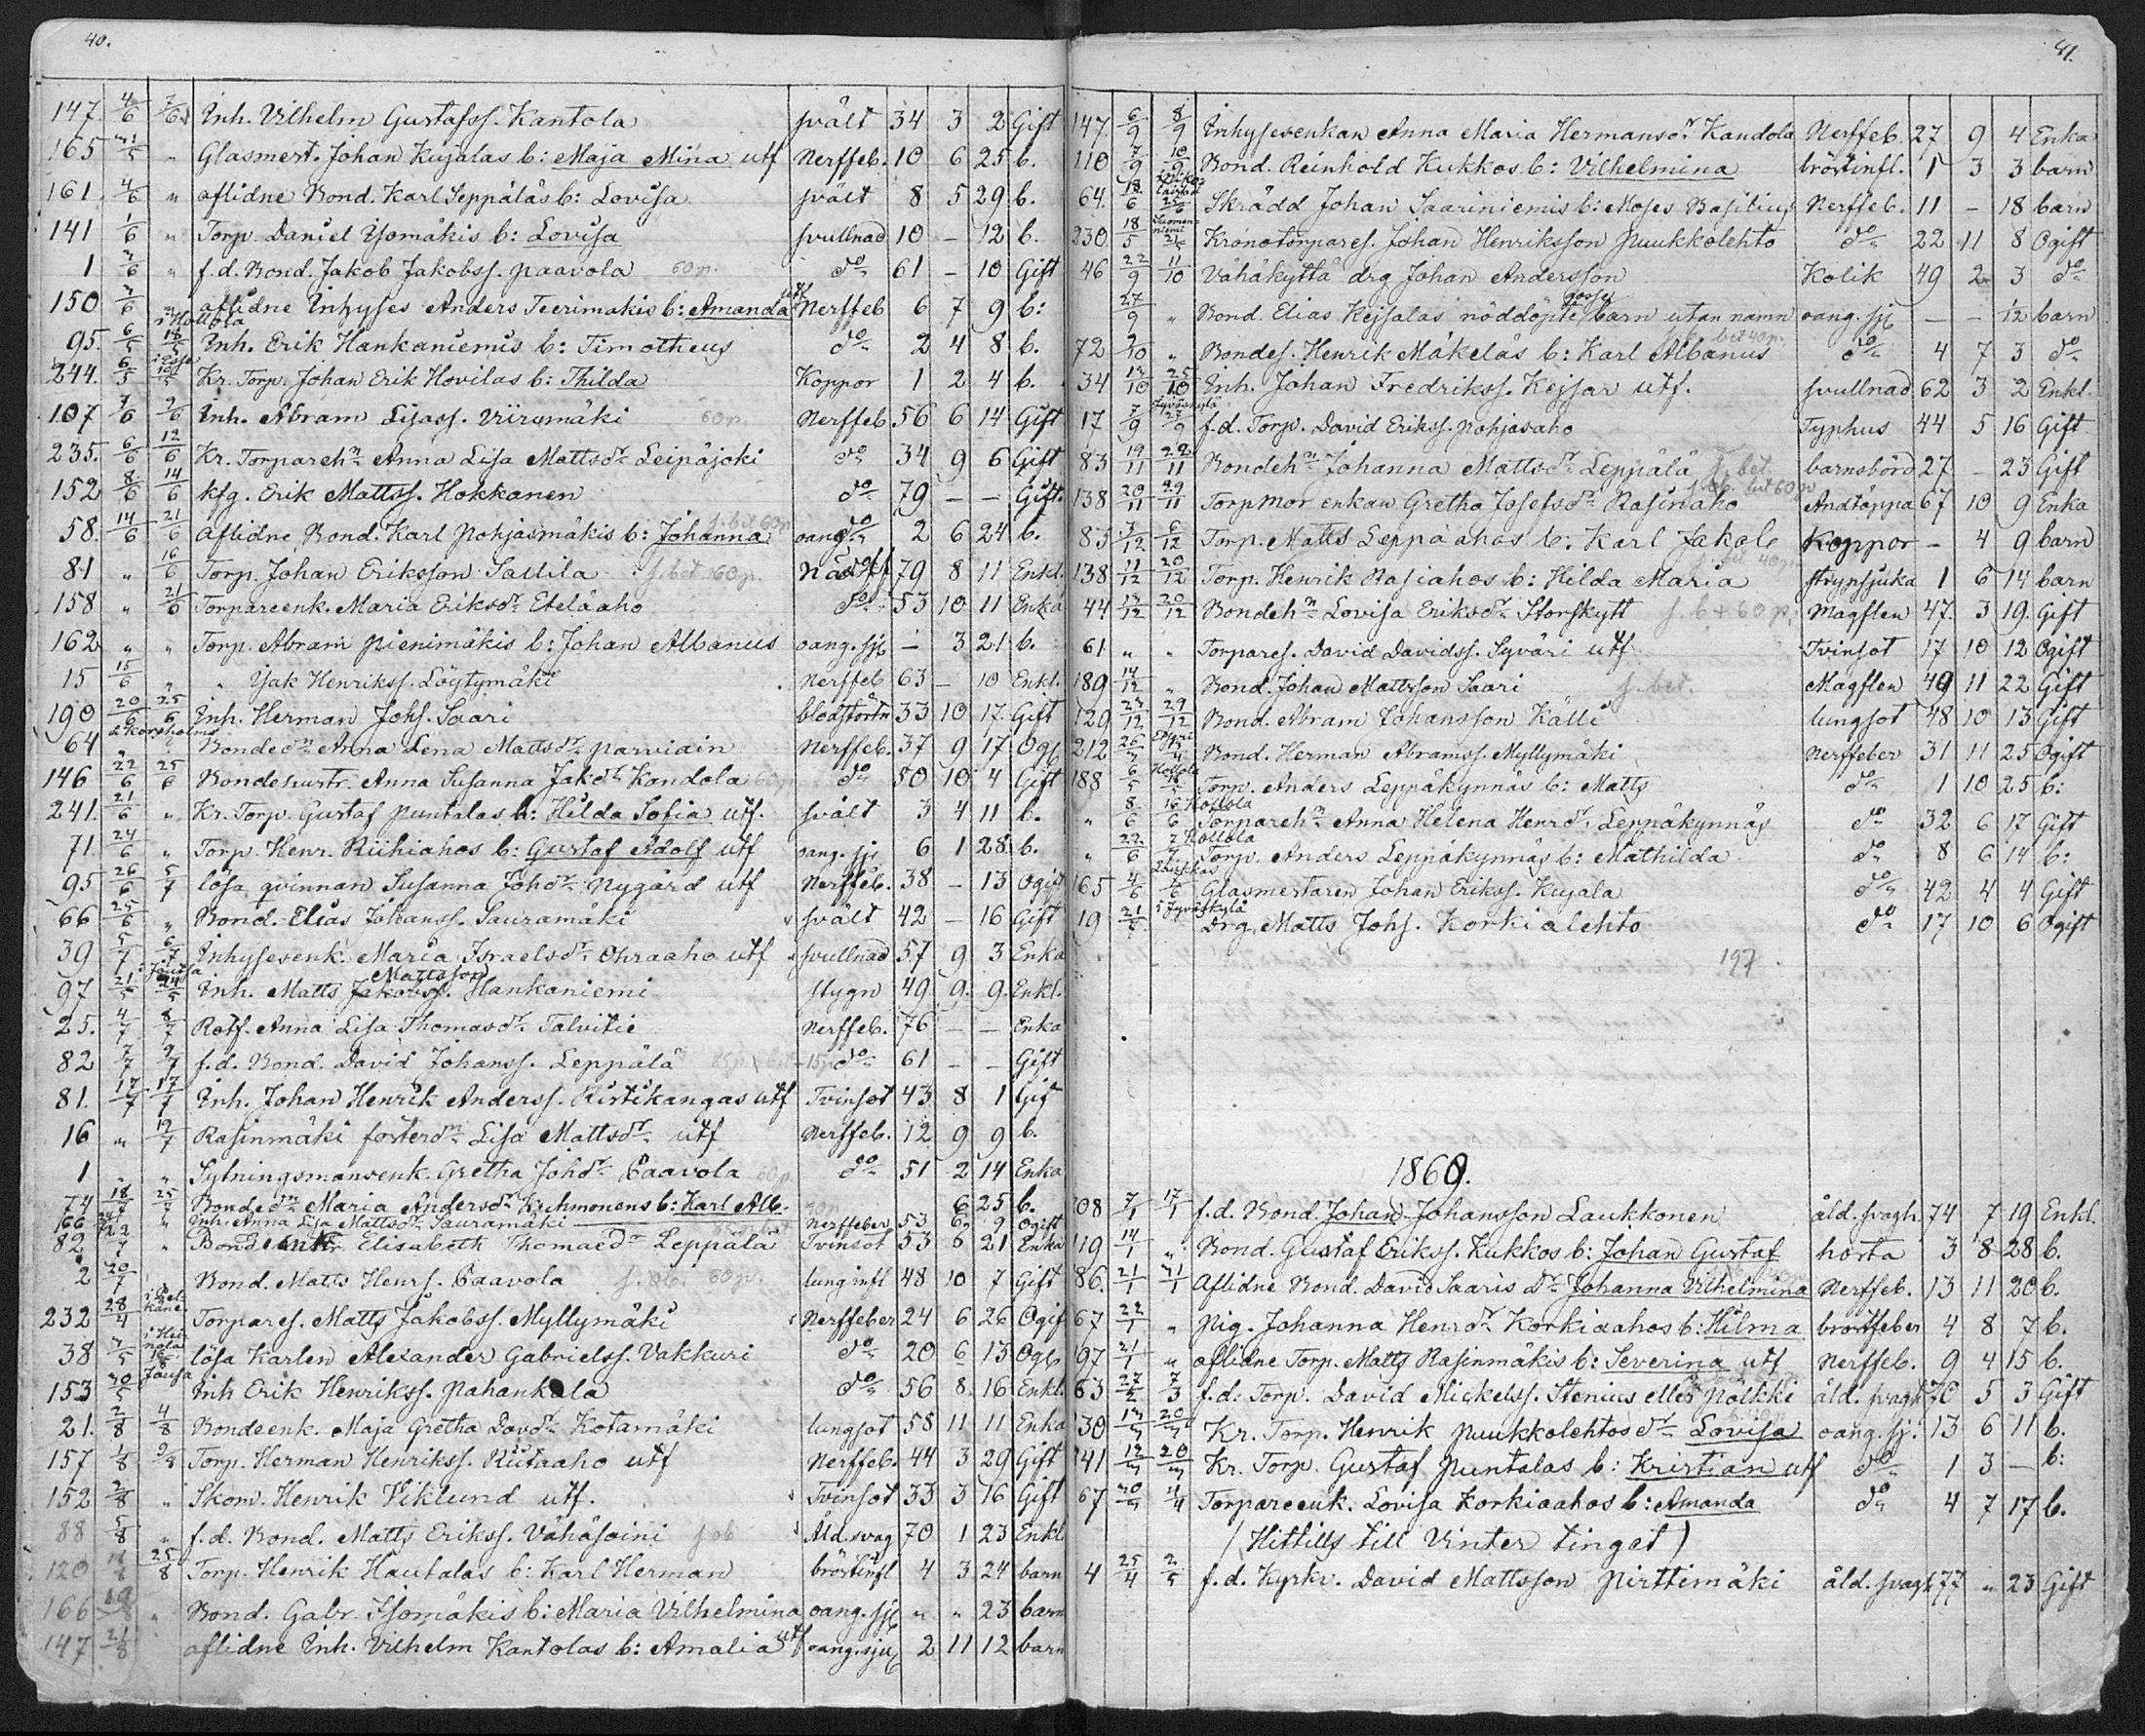 40.
147. 4/6 7/6 Inh. Vilhelm Gustafss. Kantola svält 34 3 2 Gift
165 31/5 " Glasmest. Johan Kujalas b: Maja Mina utf Nerffeb. 10 6 25 b.
161. 4/6 " aflidne Bond. Karl Seppäläs b: Lovisa svält 8 5 29 b.
141 1/6 " Torp. Daniel Isomäkis b: Lovisa svullnad 10 – 12 b.
1 3/6 " f.d. Bond. Jakob Jakobss. Paavola 60 p. do 61 – 10 Gift
150 3/6 " aflidne Inhyses Anders Teerimäkis b: Amanda utf Nerffeb 6 7 9 b:
95. 6/5 i Hollola 18/5 Inh. Erik Hankaniemis b: Timotheus do 2 4 8 b.
244. 6/5 10/5 Kr. Torp. Johan Erik Hovilas b: Thilda Koppor 1 2 4 b.
107 3/6 9/6 Inh. Abram Lisass. Viirumäki 60 p. Nerffeb 56 6 14 Gift
235. 6/6 12/6 Kr. Torpareh:n Anna Lisa Mattsdr Leipäjoki do 34 9 6 Gift
152 8/6 14/6 kfg. Erik Mattss. Hokkanen do 79 – – Gift.
58. 14/6 21/6 aflidne Bond. Karl Pohjasmäkis b: Johanna f. bet 60 p oang do 2 6 24 b.
81 " 16/6 Torp. Johan Eriksson Sallila f. bet 60 p. 79 8 11 Enkl.
158 " 21/6 Torpareenk. Maria Eriksdr Eteläaho do 53 10 11 Enka
162 " " Torp. Abram Pienimäkis b: Johan Albanus oang. sj – 3 21 b.
15 15/6 " " Isak Henrikss. Löytymäki Nerffeb 63 – 10 Enkl.
190 20/6 25/6 Inh. Herman Johs. Saari blodstörtn 33 10 17. Gift
64 " i Korsholm " Bondedr Anna Lena Mattsdr Parviain Nerffeb. 37 9 17 Og
146 22/6 25/6 Bondehustr. Anna Susanna Jakdr Kandola 60 p do 50 10 4 Gift
241. 21/6 " Kr. Torp. Gustaf Puntalas b: Hilda Sofia utf. svält 3 4 11 b.
71. 24/6 " Torp. Henr. Riihiahos b: Gustaf Adolf utf oang. sj 6 1 28 b.
95 26/6 5/7 lösa qvinnan Susanna Johdr Nygård utf Nerffeb. 38 – 13 Ogift
66 25/6 " Bond. Elias Johanss. Sauramäki svält 42 – 16 Gift
39 5/7 6/7 Inhysesenk. Maria Israelsdr Ohraaho utf svullnad 57 9 3 Enka
97 21/5 24/5 Inh. Matts Jakobss. Mattsson Hankaniemi slygn 49 9. 9. Enkl.
25. 4/7 8/7 Rotf. Anna Lisa Thomasdr Talvitie Nerffeb. 76 – – Enka
82 7/7 9/7 f.d. Bond. David Johanss. Leppälä do 61 – – Gift
81. 17/7 17/7 Inh. Johan Henrik Anderss. Ristikangas utf Tvinsot 43 8 1 Gif
16 " 19/7 Rasinmäki fosterdr Lisa Mattsdr utf Nerffeb. 12 9 9 b.
1 " " Sytningsmansenk. Gretha Johdr Paavola 60 p do 51 2 14 Enka
74 18/7 25/7 Bondedr Maria Andersdr b: Karl Alb. 6 25 b.
166 22/7 " Inh. Anna Lisa Mattsdr Sauramäki Nerffeber 53 6. 9 Ogift
82 " Bondeenk. Elisabeth Thomædr Leppälä Tvinsot 53 6 21 Enka
2 20/7 Bond. Matts Henrs. Paavola f. ob. 60 p. lung infl 48 10 7 Gift
232 28/4 Torpares. Matts Jakobss. Myllymäki Nerffeber 24 6 26 Ogif
38 7/5 lösa Karlen Alexander Gabrielss. Vakkuri do 20 6 13 Og
153 30/5 Inh Erik Henrikss. Pahankala do 56 8. 16 Enkl.
21. 2/8 4/8 Bondeenk. Maja Gretha Davdr Kotamäki lungsot 58 11 11 Enka
157 1/8 9/8 Torp. Herman Henrikss. Riitaaho utf Nerffeb. 44 3 29 Gift
152 2/8 " Skom. Henrik Viklund utf. Tvinsot 33 3 16 Gift
88 5/8 " f.d. Bond. Matts Erikss. Vähäsoini f ob Åld. svag 70 1 23 Enkl
120 18/8 25/8 Torp. Henrik Hautalas b: Karl Herman bröstinfl 4 3 24 barn
166 19/8 " Bond. Gabr. Isomäkis b: Maria Vilhelmina oang. sj " " 23 barn
147 21/8 aflidne Inh. Vilhelm Kantolas b: Amalia utf oang. sju 2 11 12 barn
41.
147. 6/9 8/9 Inhysesenkan Anna Maria Hermansdr Kandola Nerffeb. 27 9 4 Enka
110 7/9 10/9 Bond. Reinhold Kukkos b: Vilhelmina bröstinfl. 1 3 3 barn
64. 18/6 25/6 Skrädd Johan Saariniemis b: Moses Basilius Nerffeb. 11 – 18 barn
230. 18/5 Kronotorpares. Johan Henriksson Puukkolehto do 22 11 8 Ogift
46 22/9 11/10 Vähäkyttä drg Johan Andersson Kolik 49 2 3 do
27/9 " Bond. Elias Keisalas nöddöpte gosse barn utan namn oang. sj – – 12 barn
72 2/10 " Bondes. Henrik Mäkeläs b: Karl Albanus bet 40 p. do 4 7 3 do
34 13/10 25/10 Inh. Johan Fredrikss. Kejsar utf. svullnad 62 3 2 Enkl.
17 7/9 Jyväskylä 27/9 f.d. Torp. David Erikss. Pohjasaho Typhus 44 5 16 Gift
83 19/11 22/11 Bondeh:n Johanna Mattsdr Leppälä f. bet. barnsbörd 27 – 23 Gift
138 20/11 29/11 Torpmor enkan Gretha Josefsdr Rasinaho f. ob. bet 60 p Andtäppa 67 10 9 Enka
83 3/12 6/12 Torp. Matts Leppäahos b: Karl Jakob Koppor – 4 9 barn
138 11/12 20/12 Torp. Henrik Rasiahos b: Hilda Maria 40 p strypsjuka 1 6 14 barn
44 13/12 20/12 Bondeh:n Lovisa Eriksdr Storskytt f. b + 60 p. Magflen 47. 3 19. Gift
61 " " Torpares. David Davidss. Syväri utf Tvinsot 17 10 12 Ogift
189 14/12 " Bond. Johan Mattsson Saari f. bet. Magflen 49 11 22 Gift
129 23/12 29/12 Bond. Abram Johansson Källi lungsot 48 10 13 Gift
212 26/3 Bond. Herman Abramss. Myllymäki Nerffeber 31 11 25 Ogift
188 6/5 Hollola Torp. Anders Leppäkynnäs b: Matts do 1 10 25 b:
" 8/6 16/6 Hollola Torpareh:n Anna Helena Henrdr Leppäkynnäs do 32 6 17 Gift
" 22/6 Hollola Torp. Anders Leppäkynnäs b: Mathilda do 8 6 14 b:
165 4/6 Glasmestaren Johan Erikss. Kujala do 42 4 4 Gift
19 21/5 i Jyväskylä Drg. Matts Johs. Korkialehto do 17 10 6 Ogift
197
1869.
208 7/1 17/1 f.d. Bond. Johan Johansson Laukkonen åld. svagh. 74 7 19 Enkl.
119 14/1 " Bond. Gustaf Erikss. Kukkos b: Johan Gustaf hosta 3 8 28 b.
186. 21/1 31/1 Aflidne Bond. David Saaris Dr Johanna Vilhelmina Nerffeb. 13 11 20 b.
67 22/1 " Pig. Johanna Henrdr Korkiaahos b: Hilma bröstfeber 4 8 7 b.
197 21/1 " aflidne Torp. Matts Rasinmäkis b: Severina utf Nerffeb. 9 4 15 b.
63 27/2 7/3 f.d. Torp. David Mickelss. Stenius eller Pölkki åld. svagh 70 5 3 Gift
230 13/3 20/3 Kr. Torp. Henrik Puukkolehtos dr Lovisa oang. sj. 13 6 11 b.
241 12/3 20/3 Kr. Torp. Gustaf Puntalas b: Kristian utf do 1 3 – b:
67 30/3 4/4 Torpareenk. Lovisa Korkiaahos b: Amanda do 4 7 17 b.
(Hittills till Vinter tinget)
4 25/4 2/5 f.d. Kyrkv. David Mattsson Pirttimäki åld. svagh 77 " 23 Gift